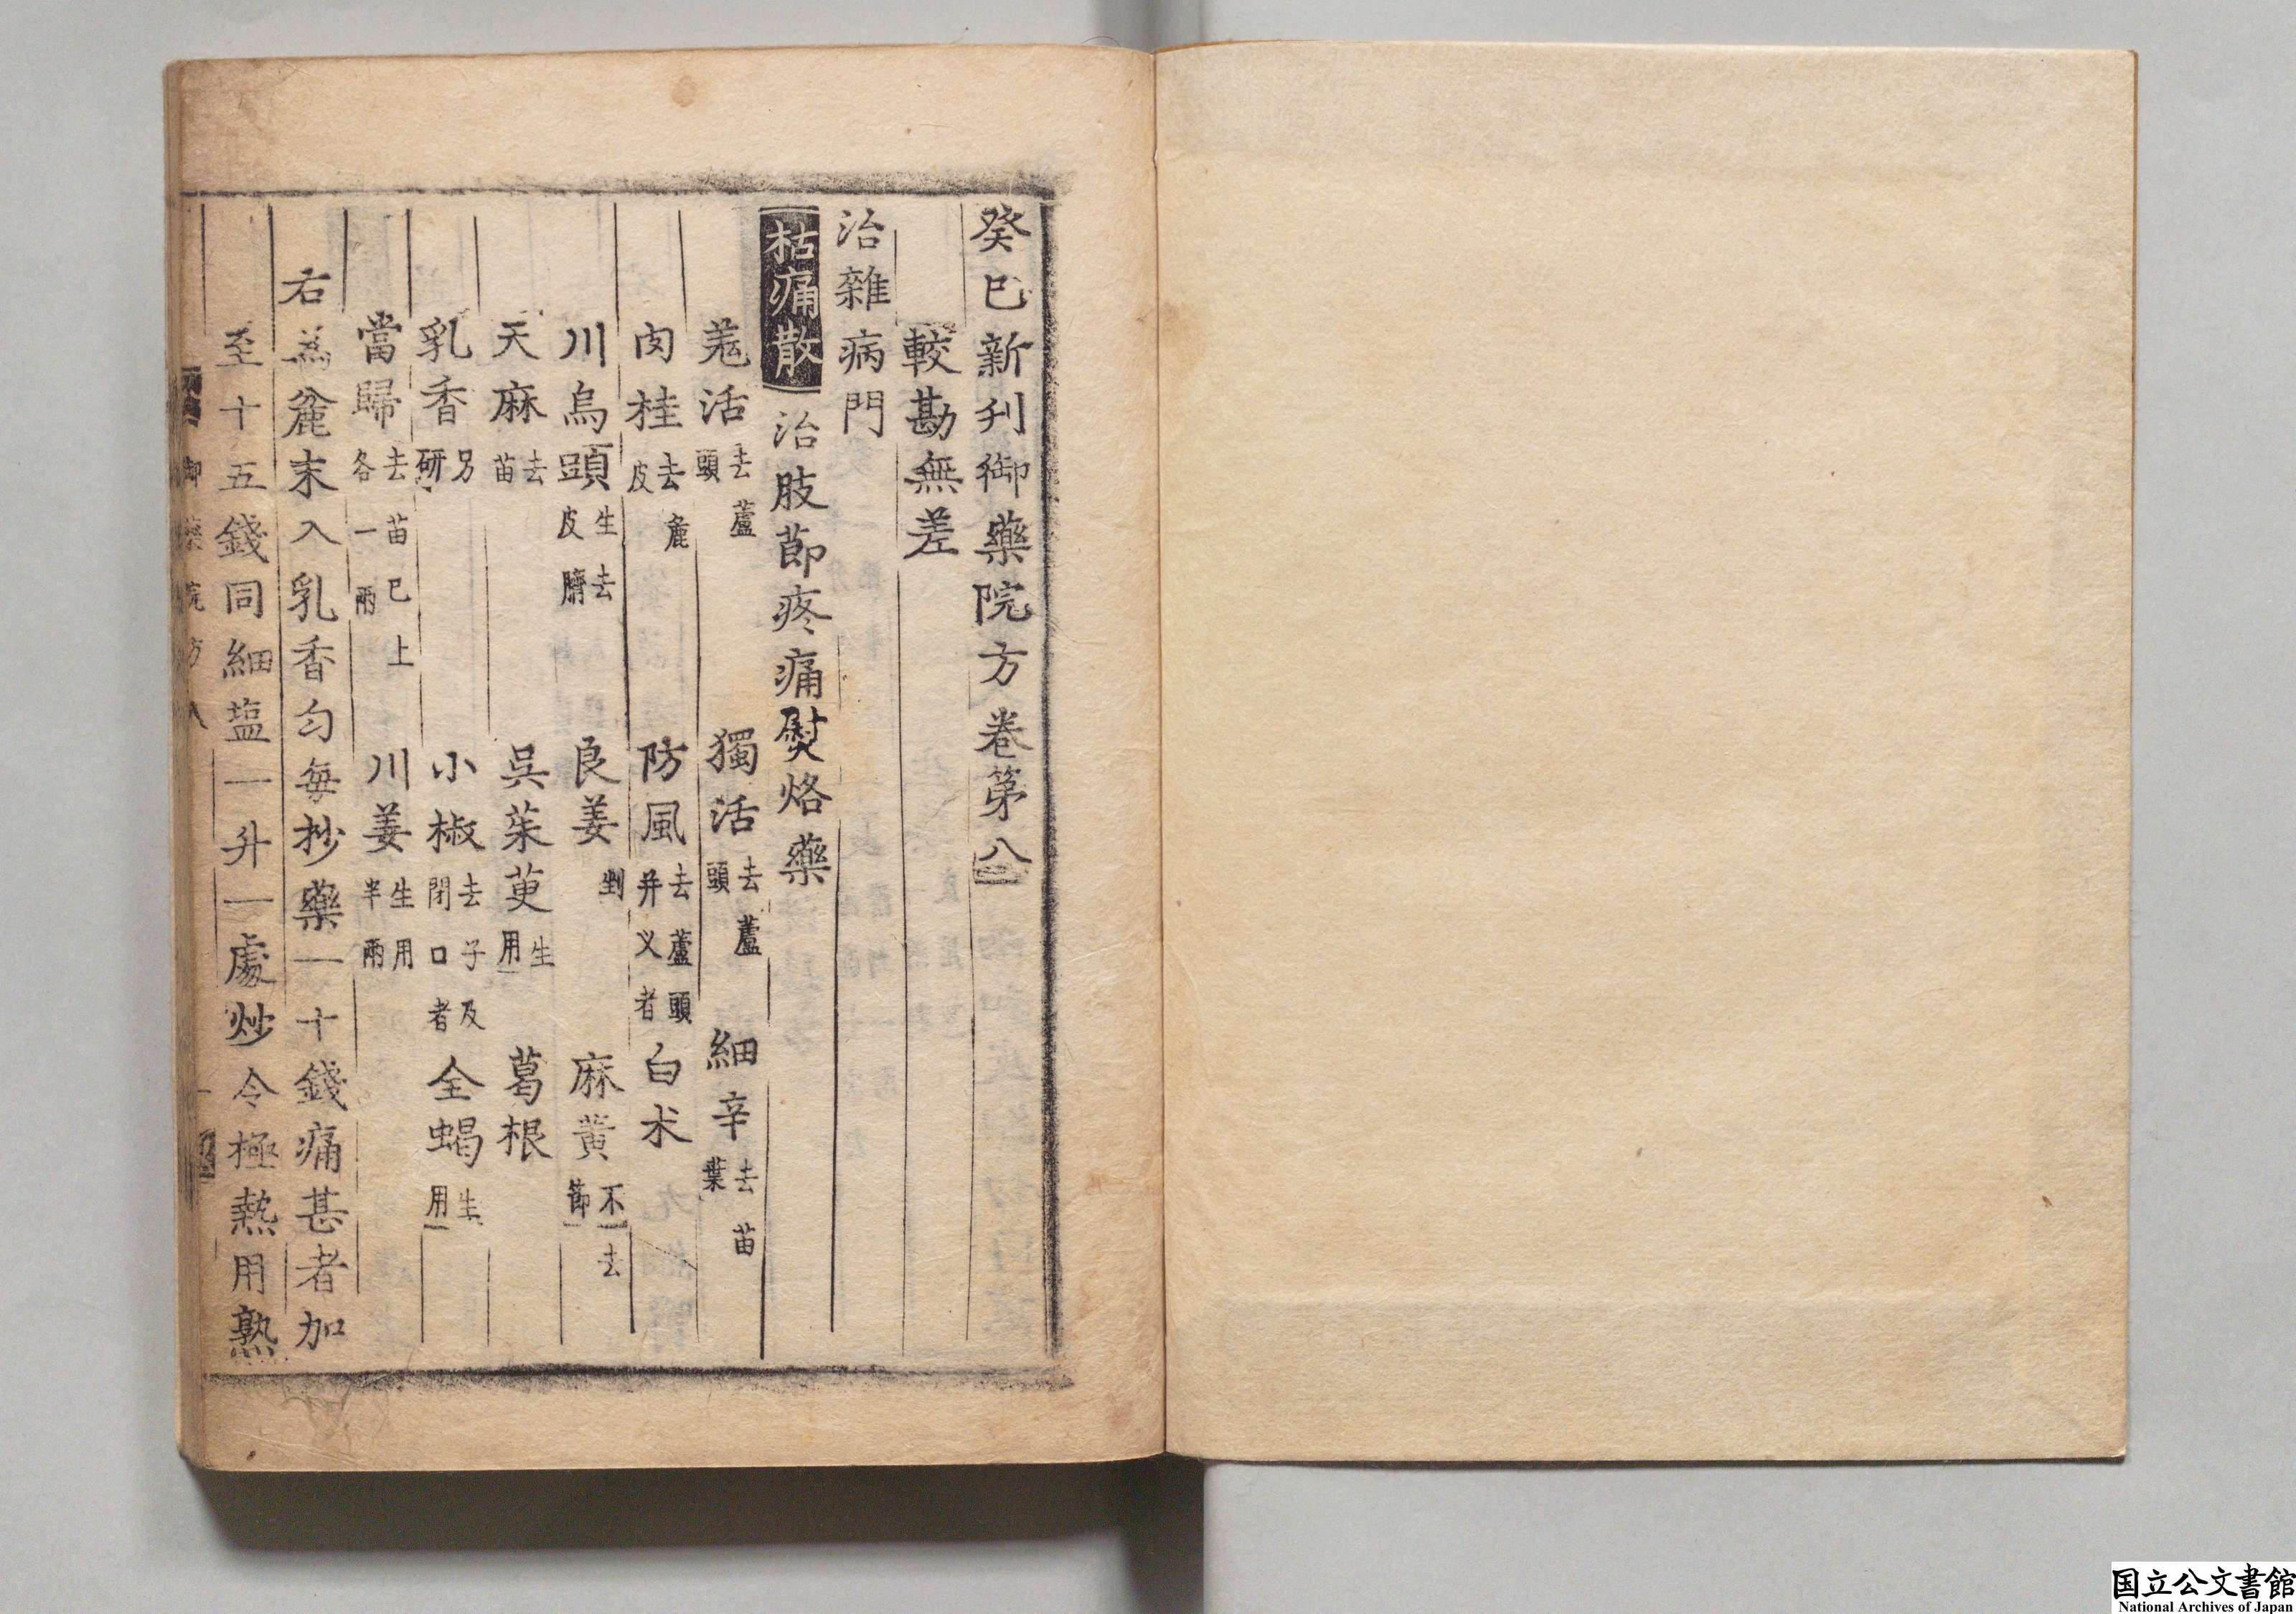 癸巳新刋御藥院方卷第八
較勘無差
治雜病門
拈痛散 治肢莭疼痛熨烙藥
羗活去蘆頭 獨活去蘆頭 細辛去苗葉
肉桂去麁皮 防風去蘆頭并义者 白术
川烏頭生去皮臍 良姜剉 麻黃不去節
天麻去苗 吳茱萸生用 葛根
乳香另研 小椒去子及閉口者 全蝎生用
當歸去苗已上各一兩 川姜生用半兩
右為麄末入乳香匀每抄藥一十錢痛甚者加
至十五錢同細塩一升一處炒令極熱用熟
御藥院方八
国立公文書館
National Archives of Japan